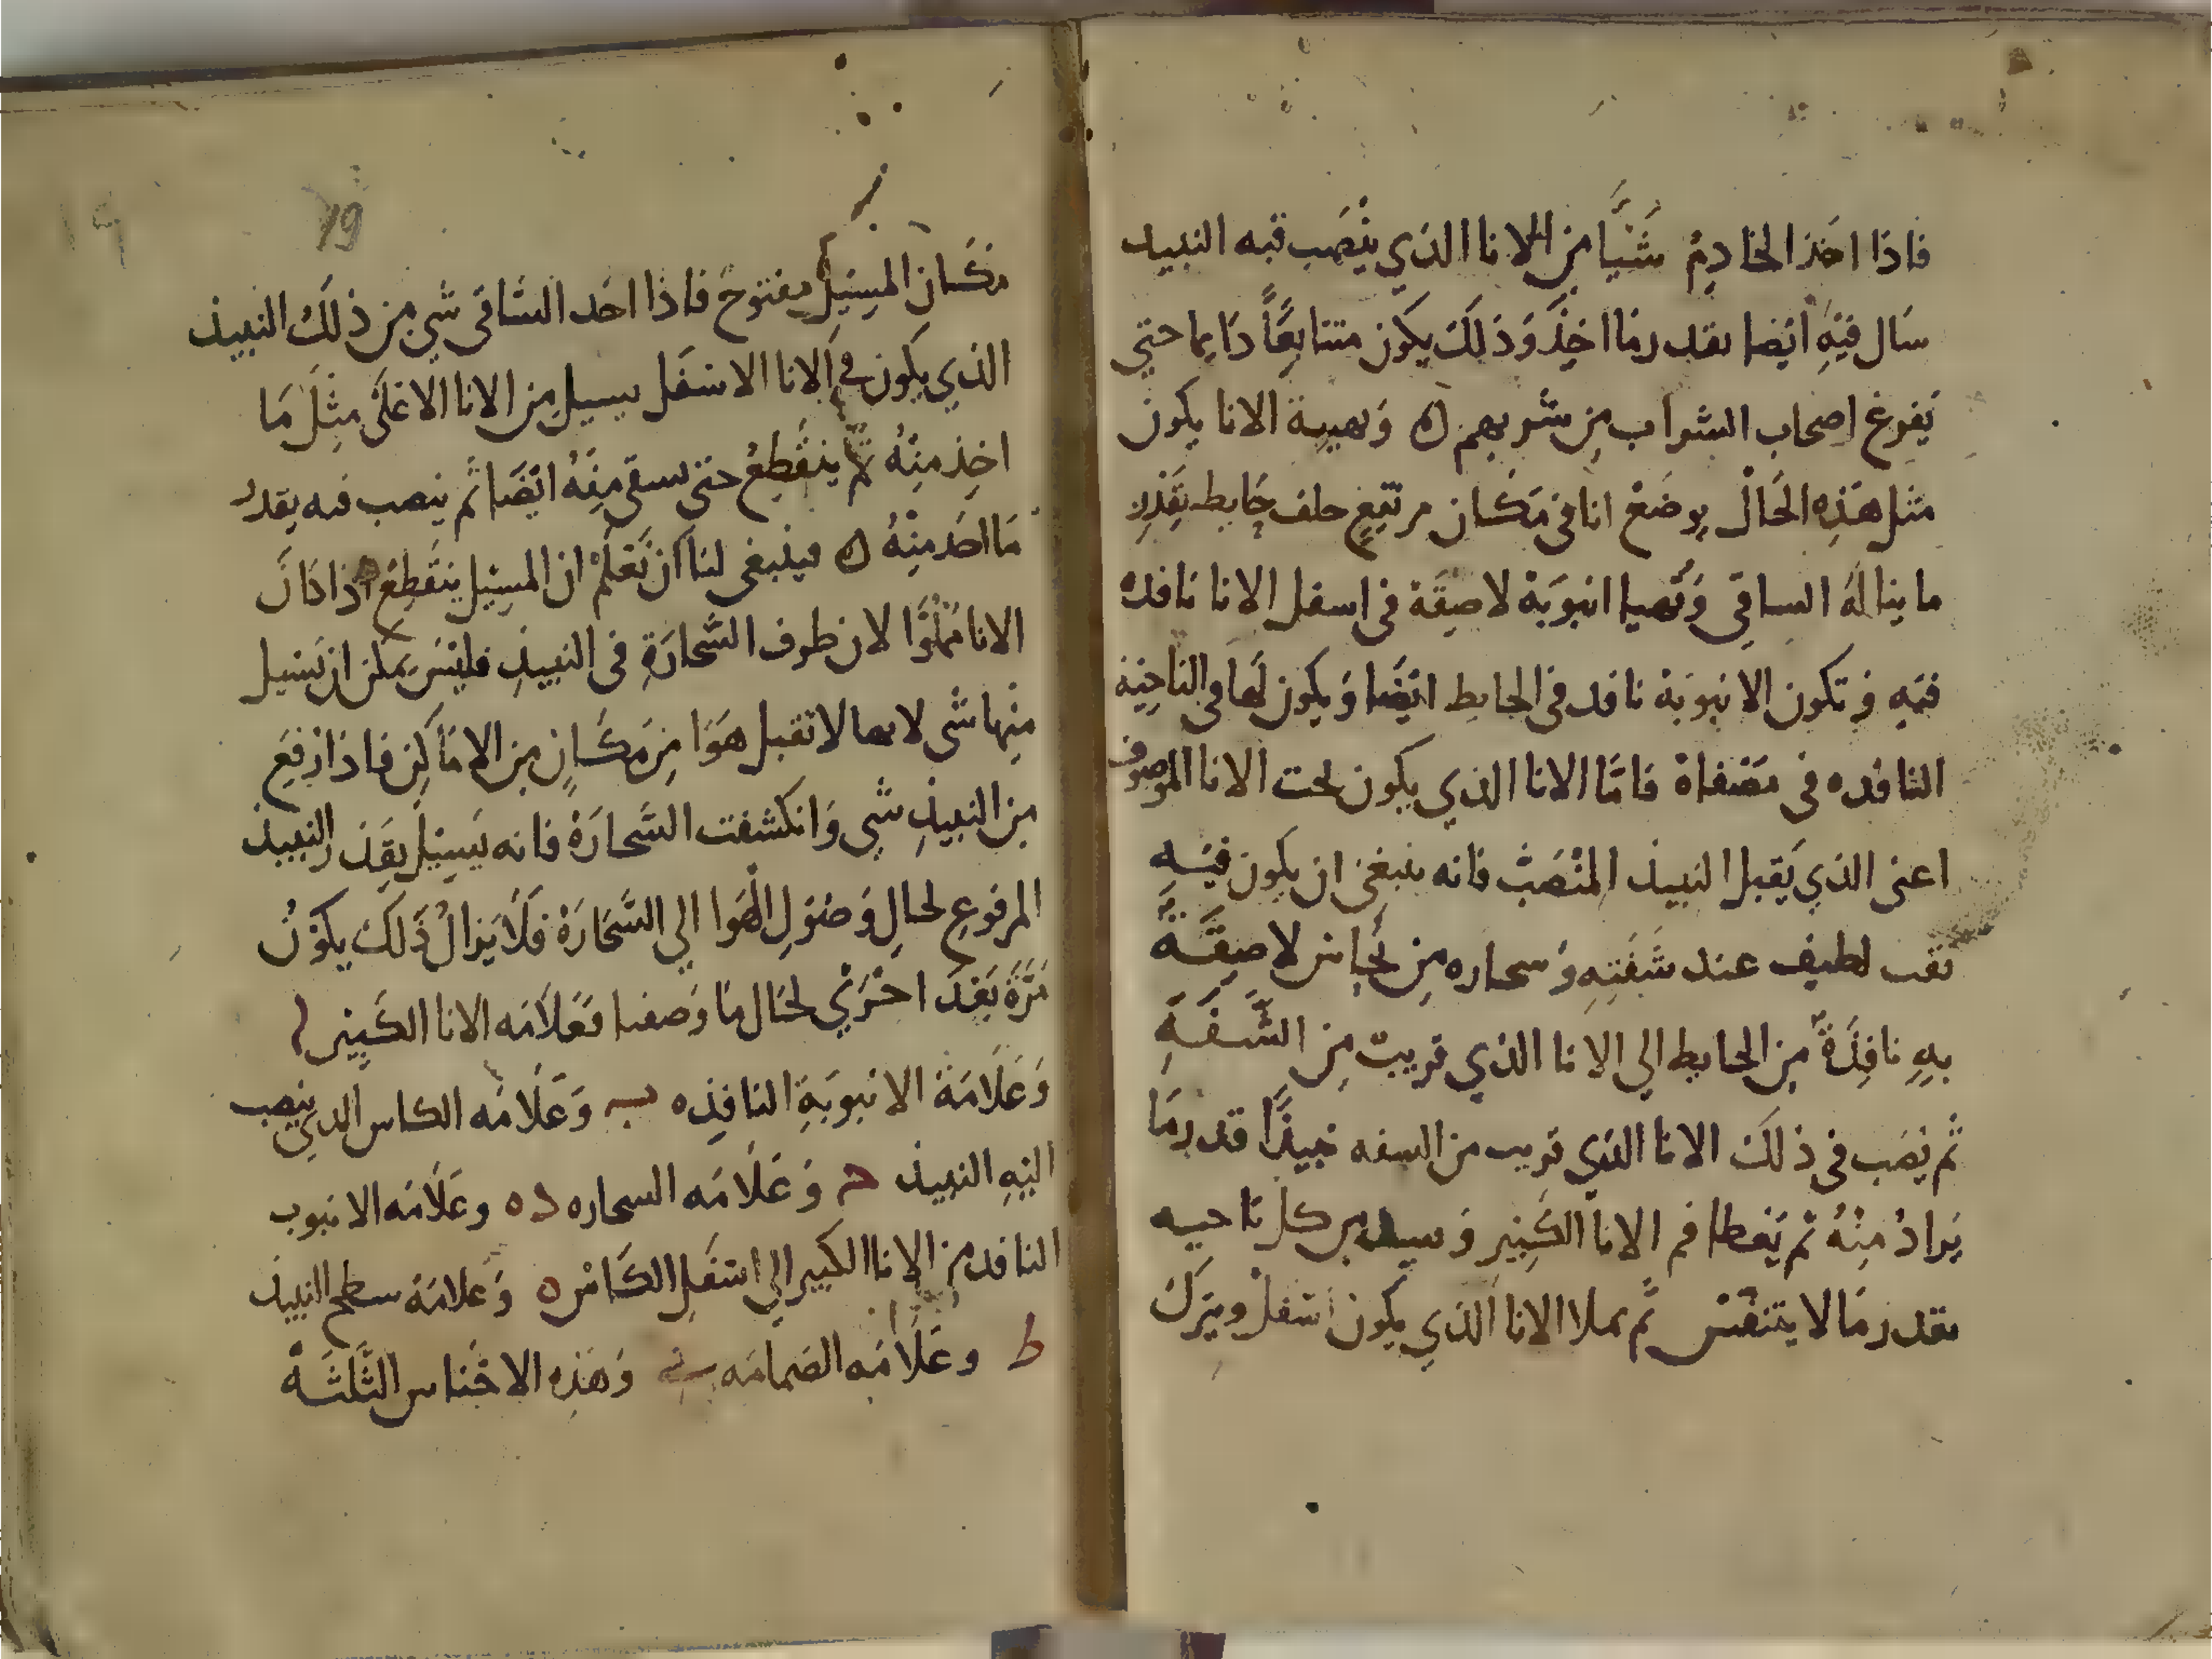 فاذا اخذ الخادِمُ شَيًا مِن الانا الذي ينْصَب فيه النبيد
سَال فيْهِ ايْضا بقدر مَا اخِذَ وَذلِكَ يكون متتابِعًا دَايما حتي
يَفرغ اصحاب الشراب مِن شربهم ه وَهيية الانا يكون
مثل هَذِهِ الحَالْ يوضَعْ انا في مَكان مرتفِعٍ خلف حَايط بقَدْرِ
ما ينالهُ الساقِي وَتُهيا انبوَبَة لاصِقَة في اسفل الانا نافدة
فيْهِ وَتكون الانبوَبة نافد في الحايط ايْضَا وَيكون لَها في الناحِيَة
النافده في مَصْفاة فامّا الانا الذي يكون تحت الانا الموصوف
اعني الذي يَقبل النبيد المنْصَبْ فانه ينبغي ان يكون فيْهِ
ثقب لطيف عند شَفتِهِ وَسحاره مِن نُحاس لاصِقَةً
بهِ نافِذَةً مِن الحايط الي الانا الذي قريبٌ مِن الشَّفَةِ
ثم يُصَب في ذلكَ الانا الذي قريب من السفه نبيذًا قدر مَا
يَرادُ مِنْهُ ثم يَغطا فم الانا الكَبِير وَسيده من كل ناحيه
بقدر مَا لا يتنفسْ ثم يملا الانا الذي يكون اسْفلْ ويترك
19
مَكان المسِيْل مفتوحَ فاذا اخد السَّاقي شي مِن ذلَكَ النبيذ
الذي يكون في الانا الاسْفَل يسيل مِن الانا الاعْلَى مِثْلَ مَا
اخِذ مِنْهُ ثم ينقَطِعُ حتي يسقي مِنْهُ ايْضَا ثم ينصب فيه بقدر
مَا اخَد مِنْهُ ه فينبغي لنا ان نَعْلَمْ ان المسِيْل ينقَطِعُ اذا كانَ
الانا مَمْلوًا لان طرف السَّحارَةِ في النبيذِ فليْسَ يمكن ان يَسيل
مِنْها شي لانها لا تقبل هَوَا مِن مَكانٍ مِن الامَاكِن فاذا ارْفِعَ
مِن النبيذِ شي وَانكشفت السَّحارَةْ فانه يَسِيْل بقَدْر النبيد
المرفوعِ لحالِ وَصُوْلِ الهَوا الي السَّحَارَةْ فَلَا يَزالُ ذَلكَ يكوْنُ
مَرَّةً بَعْدَ اخْرَيْ لحَال مَا وَصفنا فعَلاَمَه الانا الكَبِير ا
وَعَلَامَةْ الانبوَبَةِ النافِذه ب وَعَلَامَه الكاس الدي ينصب
اليْهِ النبيذ ح وَعَلَامَه السحاره د ه وعَلَامَه الانبوب
النافد من الانا الكبير الي اسْفَلِ الكَاسْ ه وَعلامَة سطح النبيد
ط وعَلَامَه الضمامَه وَهَذِه الاجْناس الثَّلثَةْ